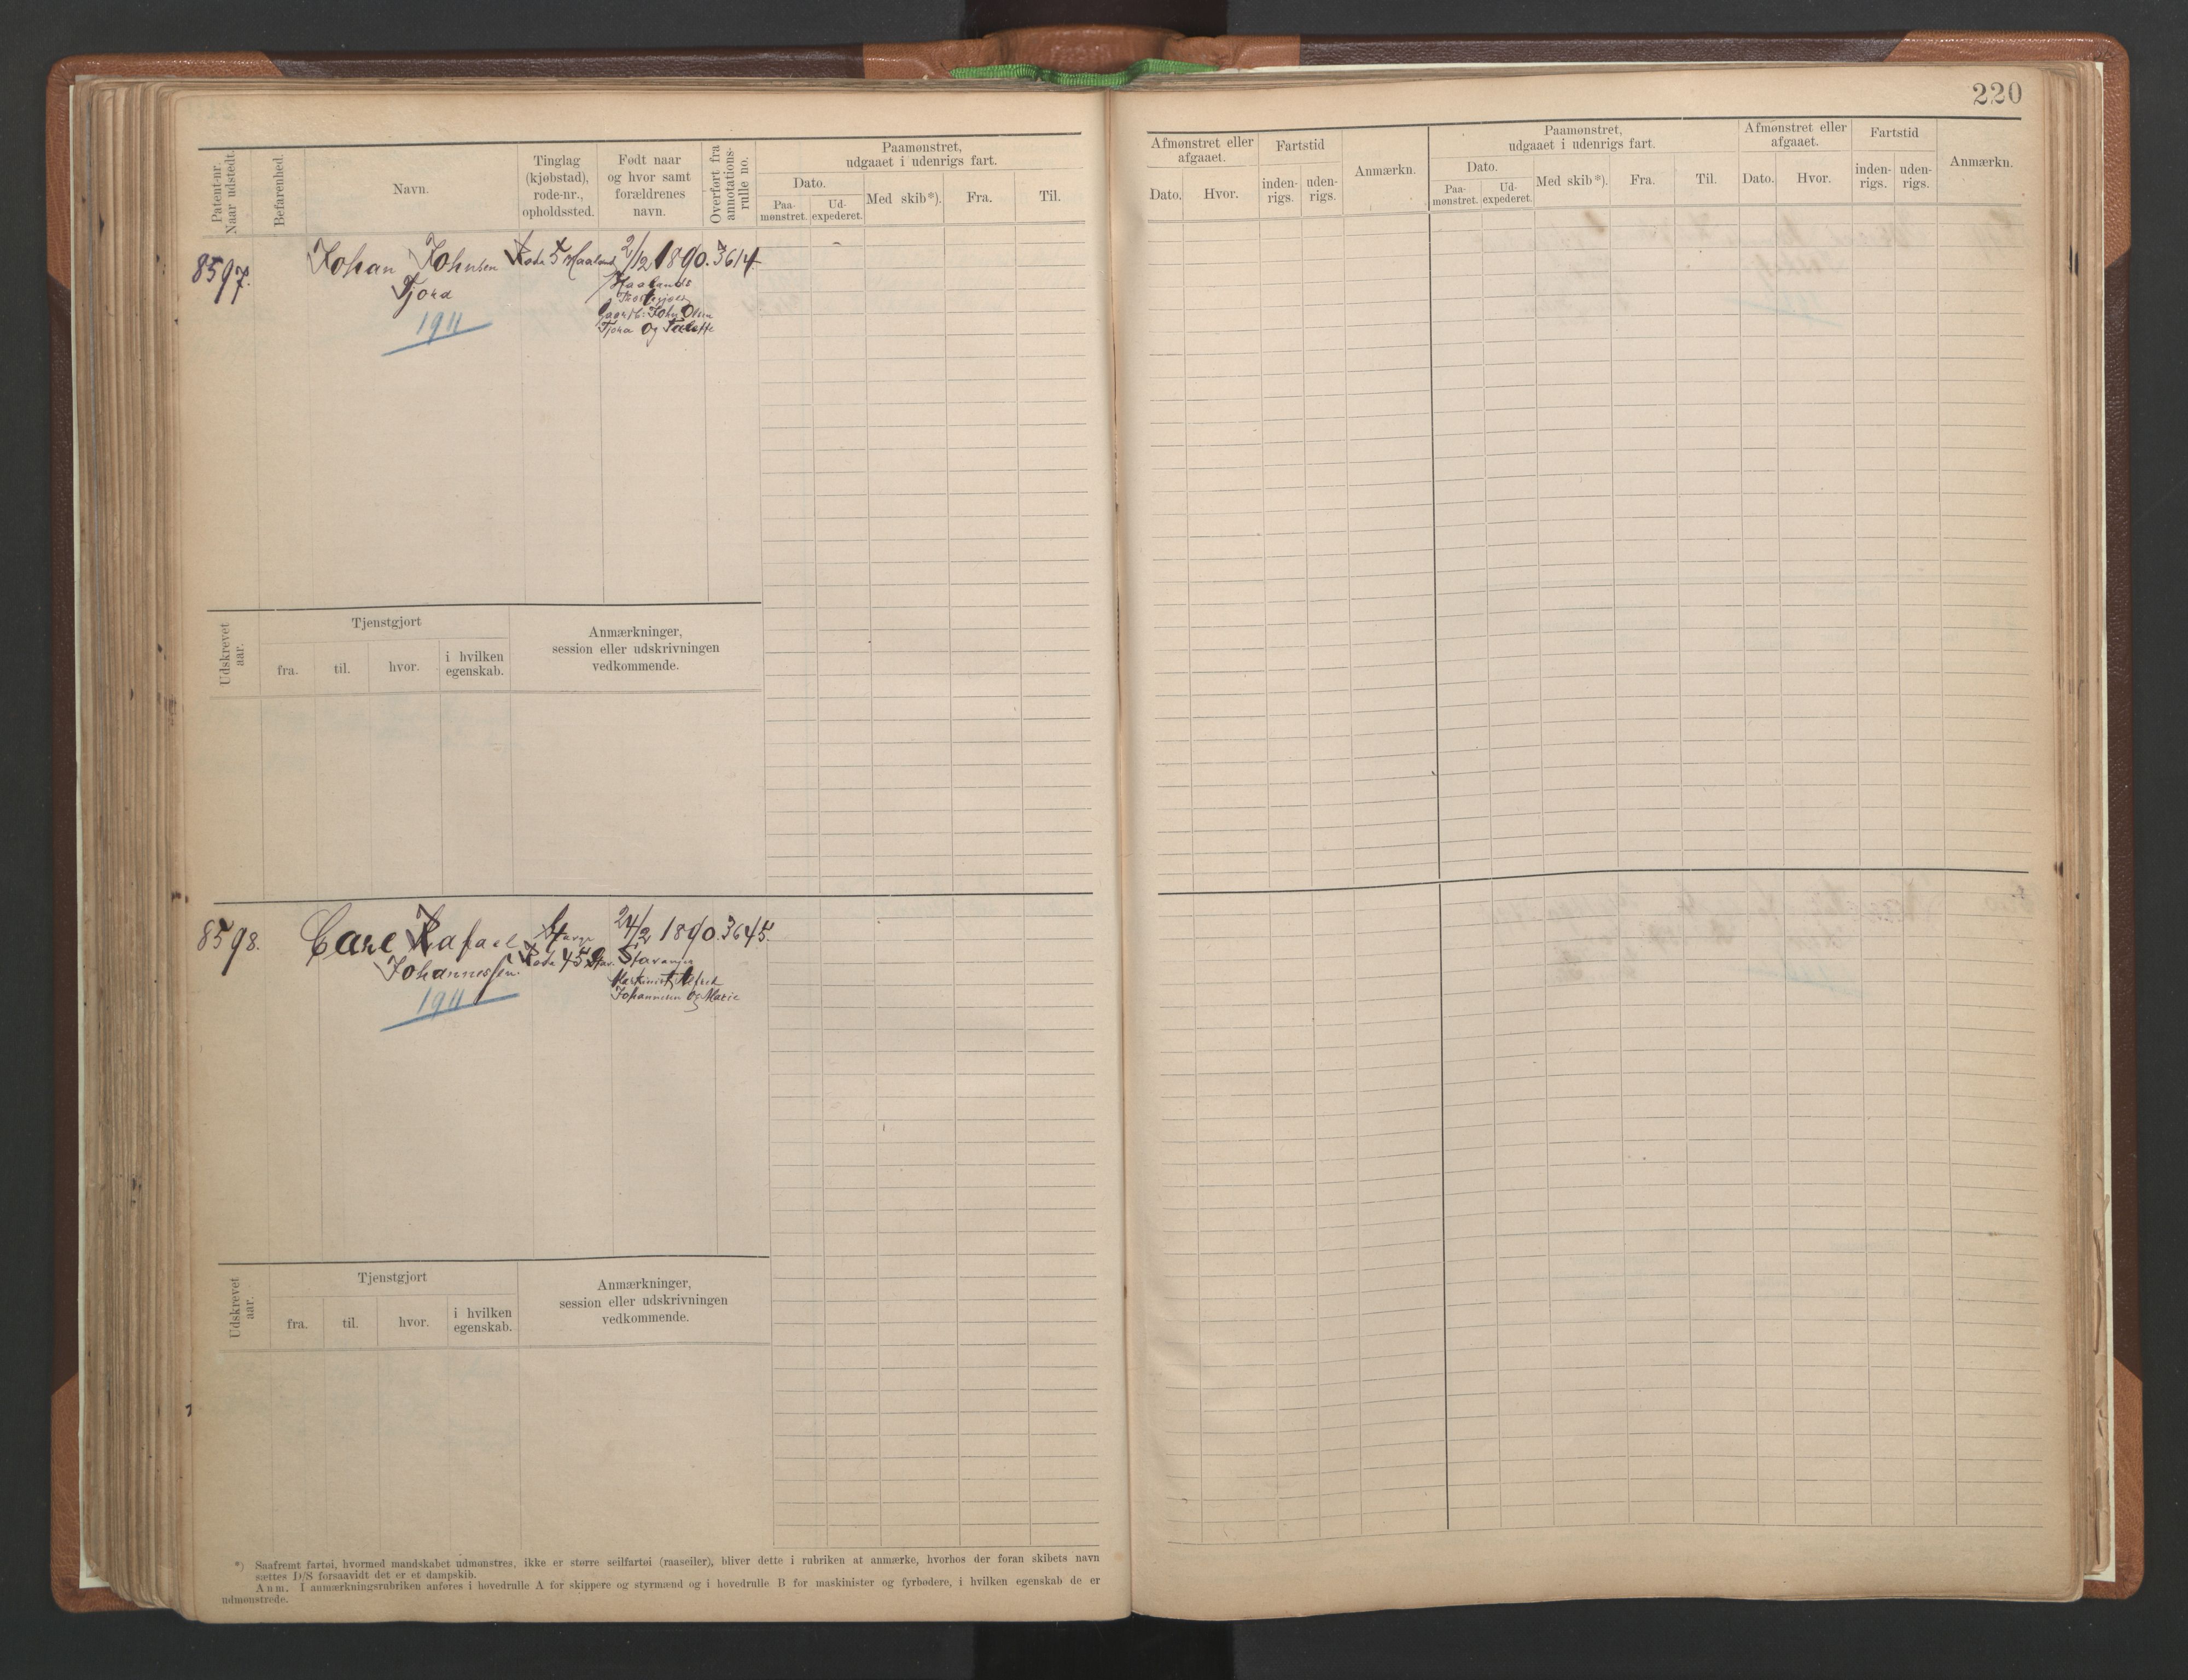 220
Patent-nr.
Naar udstedt.
Befarenhed.
Navn.
Tinglag
(kjøbstad),
rode-nr.,
opholdssted.
Født naar
og hvor samt
forældrenes
navn.
Overført fra
annotations-
rulle no.
Paamønstret,
udgaaet i udenrigs fart.
Dato.
Paa-
mønstret.
Ud-
expederet.
Med skib*).
Fra.
Til.
Afmønstret eller
afgaaet.
Dato.
Hvor.
Fartstid
inden-
rigs.
uden-
rigs.
Anmærkn.
Paamønstret,
udgaaet i udenrigs fart.
Dato.
Paa-
mønstret.
Ud-
expederet.
Med skib*).
Fra.
Til.
Afmønstret eller
afgaaet.
Dato.
Hvor.
Fartstid
inden-
rigs.
uden-
rigs.
Anmærkn.
8597.
Johan Johnsen
Tjora
1911
Rode 5 Haaland
2/12 1890.
Haalands
John Olsen
Tjora og
3614
Udskrevet
aar.
Tjenstgjort
fra.
til.
hvor.
i hvilken
egenskab.
Anmærkninger,
session eller udskrivningen
vedkommende.
8598.
Carl Rafael
Johannessen.
1911
Rode 45 Stav.
24/2 1890.
Stavanger
Maskinist Alfred
Johannesen og Marie
3645.
Udskrevet
aar.
Tjenstgjort
fra.
til.
hvor.
i hvilken
egenskab.
Anmærkninger,
session eller udskrivningen
vedkommende.
*) Saafremt fartøi, hvormed mandskabet udmønstres, ikke er større seilfartøi (raaseiler), bliver dette i rubriken at anmærke, hvorhos der foran skibets navn
sættes D/S forsaavidt det er et dampskib.
Anm. I anmærkningsrubriken anføres i hovedrulle A for skippere og styrmænd og i hovedrulle B for maskinister og fyrbødere, i hvilken egenskab de er
udmønstrede.